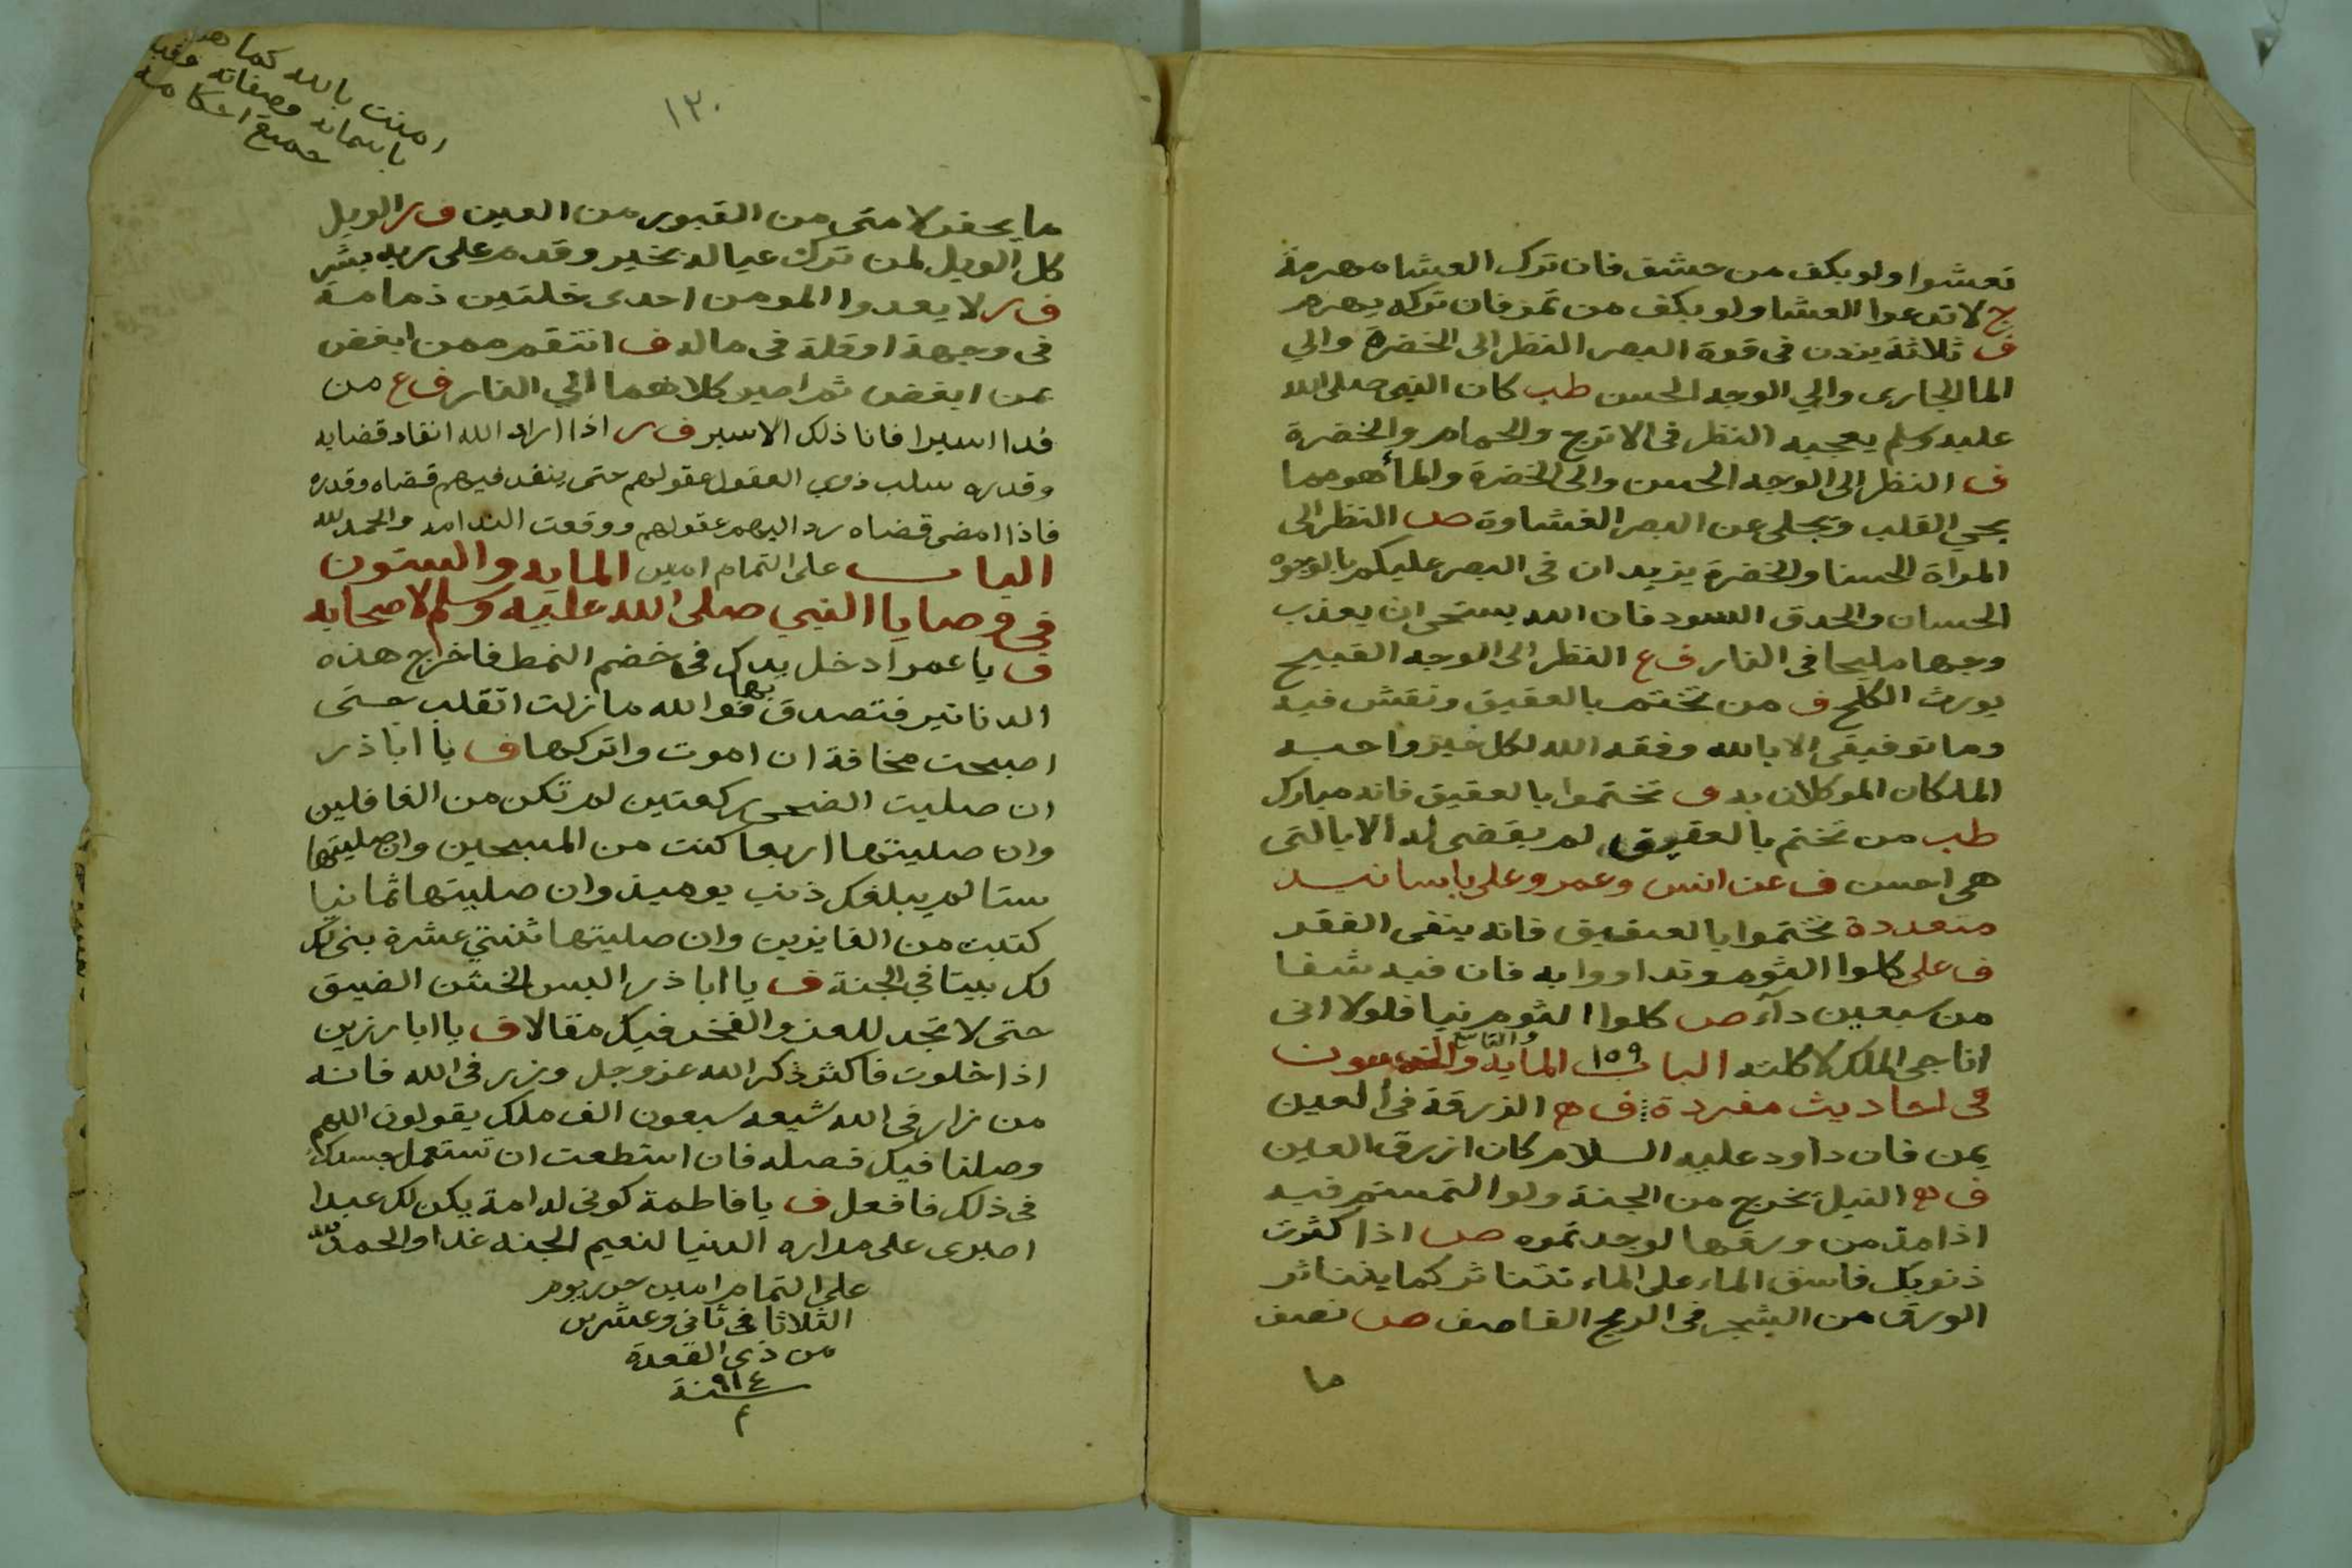 تعشوا ولو بكف من حشف فان ترك العشا مهرمة
ج لا تدعوا العشا ولو بكف من تمر فان تركه يهرم
ف ثلاثة يزدن فى قوة البصر النظر الى الخضرة والي
الما الجارى والي الوجه الحسن طب كان النبى صلى الله
عليه وسلم يعجبه النظر فى الاترج والحمام والخضرة
ف النظر الى الوجه الحسن والى الخضرة والمأ هو مما
يحيي القلب ويجلى عن البصر الغشاوة ص النظر الى
المراة الحسنا والخضرة يزيدان فى البصر عليكم بالوجوه
الحسان والحدق السود فان الله يستحى ان يعذب
وجها مليحا فى النار ف ع النظر الى الوجه القبيح
يورث الكلح ف من تختم بالعقيق ونقش فيه
وما توفيقى الا بالله وفقه الله لكل خير واحبه
الملكان الموكلان به ف تختموا بالعقيق فانه مبارك
طب من تختم بالعقيق لم يقضى له الا بالتى
هى احسن ف عن انس وعمر وعلى باسانيد
متعددة تختموا بالعقيق فانه ينفى الفقر
ف على كلوا الثوم وتداووا به فان فيه شفا
من سبعين دآء ص كلوا الثوم نيا فلولا انى
اناجى الملك لاكلته الباب ١٥٩ المايه والتاسع والخمسون
فى احاديث مفردة ف م الزرقة فى العين
يمن فان داود عليه السلام كان ازرق العين
ف م النيل يخرج من الجنة ولو التمستم فيه
اذا مد من ورقها لوجدتموه ص اذا كثرت
ذنوبك فاسق الماء على الماء تتناثر كما يتناثر
الورق من الشجر فى الريح العاصف ص نصف
ما
١٣٠
امنت بالله كما هو
باسمائه وصفاته وقبلت
جميع احكامه
ما يحفر لامتى من القبور من العين ف ر الويل
كل الويل لمن ترك عياله بخير وقدم على ربه بشر
ف ر لا يعدوا المومن احدى خلتين دمامة
فى وجهه او قلة فى ماله ف انتقم ممن ابغض
عمن ابغض ثم اصير كلاهما الي النار ف ع من
فدا اسيرا فانا ذلك الاسير ف ر اذا اراد الله انفاد قضايه
وقدره سلب ذوي العقول عقولهم حتى ينفد فيهم قضاه وقدره
فاذا امضى قضاه رد اليهم عقولهم ووقعت الندامه والحمد لله
الباب على التمام امين المايه والستون
فى وصايا النبي صلى الله عليه وسلم لاصحابه
ف يا عمر ادخل يدك فى خضم النمط فاخرج هذه
الدنانير فتصدق بها فوالله ما زلت اتقلب حتى
اصبحت مخافة ان اموت واتركها ف يا ابا ذر
ان صليت الضحى ركعتين لم تكن من الغافلين
وان صليتها اربعا كنت من المسبحين وان صليتها
ستا لم يبلغك ذنب يوميذ وان صليتها ثمانيا
كتبت من الفايزين وان صليتها ثنتي عشرة بنى لك
لك بيتا في الجنة ف يا ابا ذر البس الخشن الضيق
حتى لا تجد للعز والفخر فيك مقالا ف يا ابا رزين
اذا خلوت فاكثر ذكر الله عز وجل وزر فى الله فانه
من زار فى الله شيعه سبعون الف ملك يقولون اللهم
وصلنا فيك فصله فان استطعت ان تستعمل جسدك
فى ذلك فافعل ف يا فاطمة كونى له امة يكن لك عبدا
اصبرى على مراره الدنيا لنعيم الجنه غدا والحمد لله
على التمام امين حرر يوم
الثلاثا فى ثانى وعشرين
من ذى القعدة
سنة ٩١٤
م